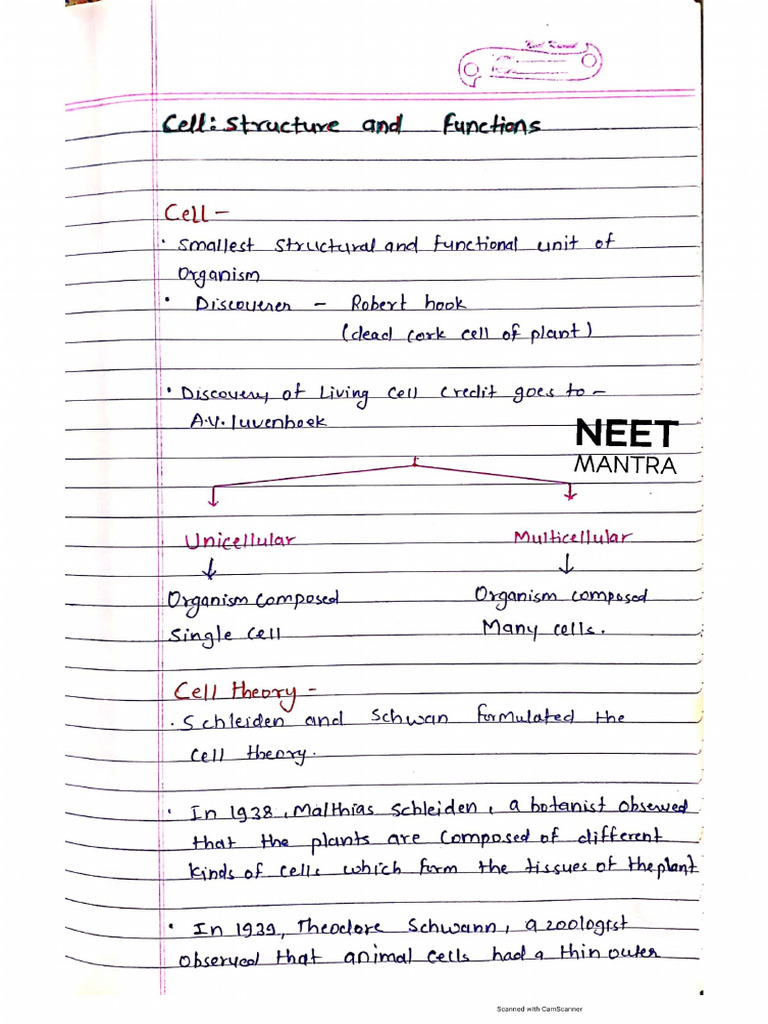 Cell: Structure and Functions
Cell -
• Smallest Structural and functional unit of
Organism
• Discoverer - Robert hook
(dead cork cell of plant)
• Discovery of Living cell credit goes to -
A.V. luvenhoek
NEET
MANTRA
Unicellular
Multicellular
Organism composed
Organism composed
Single cell
Many cells.
Cell theory -
• Schleiden and Schwan formulated the
cell theory.
• In 1938, Malthias Schleiden, a botanist observed
that the plants are composed of different
kinds of cells which form the tissues of the plant
• In 1939, Theodore Schwann, a zoologist
observed that animal cells had a thin outer
Scanned with CamScanner